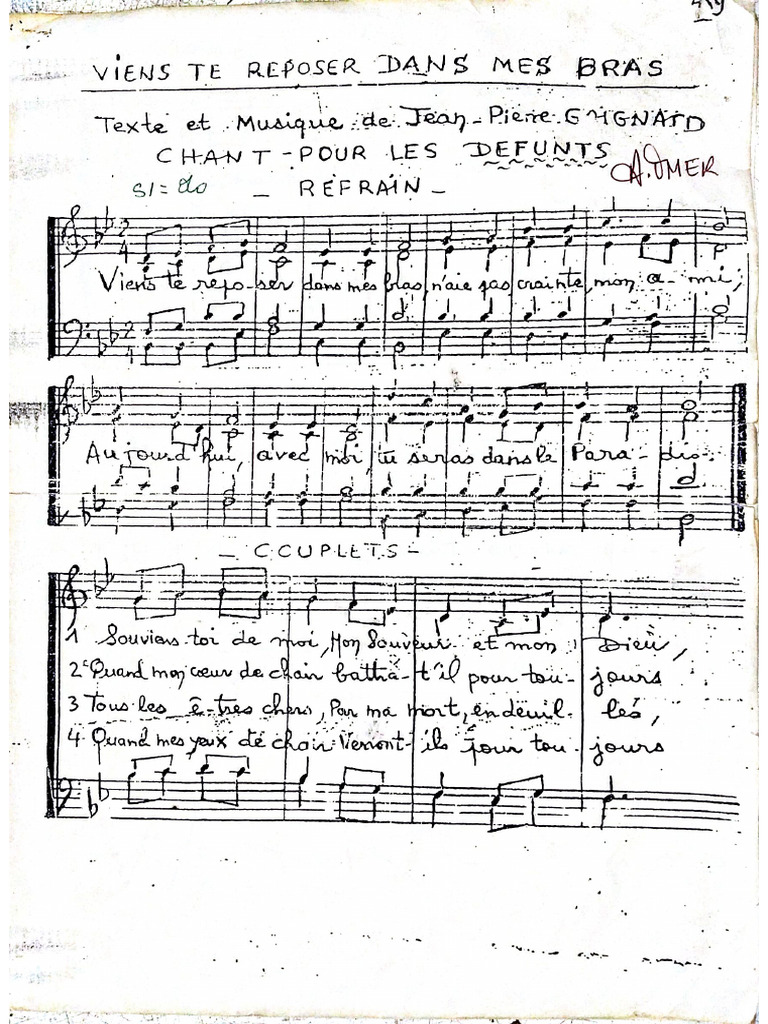 VIENS TE REPOSER DANS MES BRAS
Texte et Musique de Jean-Pierre GUIGNARD
CHANT-POUR LES DEFUNTS
A. OMER
SI = do
- REFRAIN -
Viens te repo-ser dans mes bras, n'aie pas crainte, mon a-mi;
Aujourd'hui, avec moi, tu seras dans le Para-dis.
- COUPLETS -
1 Souviens-toi de moi, Mon Sauveur et mon Dieu,
2 Quand mon cœur de chair battra-t'il pour tou-jours
3 Tous les ê-tres chers, Par ma mort, endeuil-lés,
4 Quand mes yeux de chair Verront-ils pour tou-jours